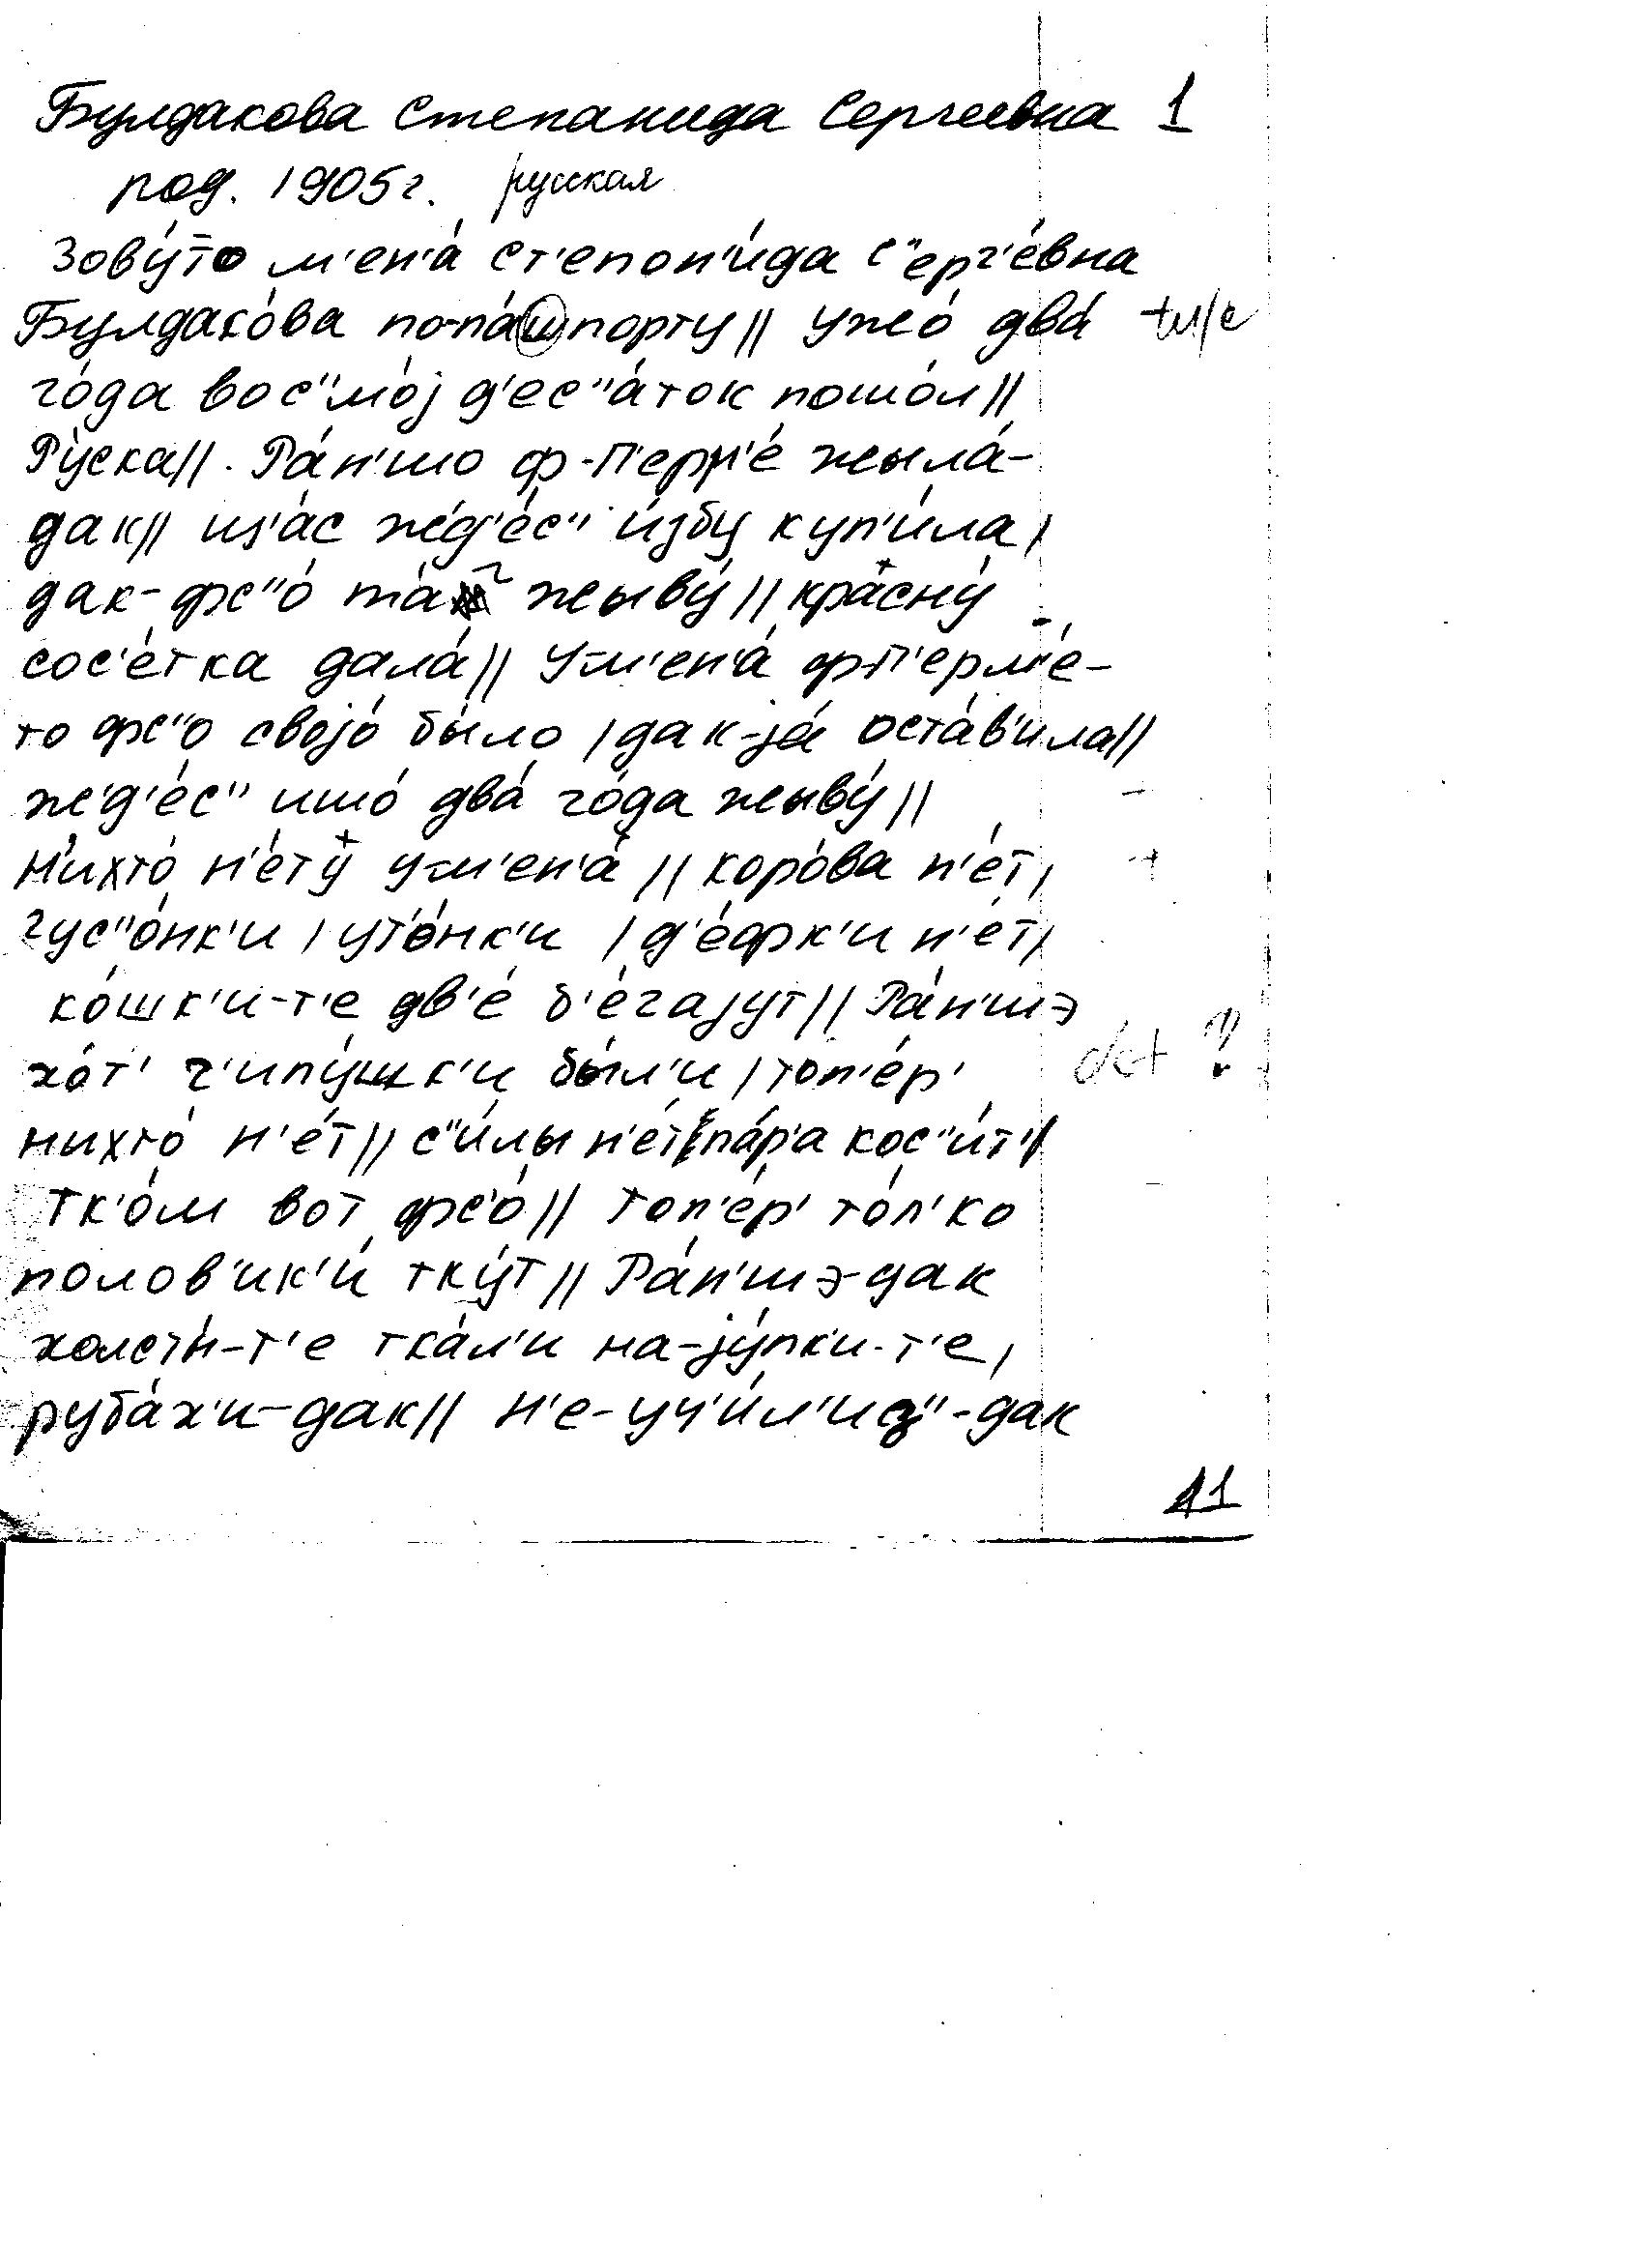 Булдакова Степанида Сергеевна 1
род. 1905 г. русская
Зову́то м'ен'а́ ст'епон'и́да с"ерг'е́вна
Булдако́ва по-па́шпорту // ужо́ два́
го́да вос"мо́j д'ес"а́ток пошо́л //
Ру́ска // Ра́н'шо ф-П'ерм'е́ жыла́-
дак // ш'а́с жд'е́с" и́збу куп'и́ла /
дак-фс"о́ та́ жыву́ // кра́сну́
сос'е́тка дала́ // У-м'ен'а́ ф-П'ерм'е́-
то фс"о своjо́ бы́ло / дак-jа́ оста́в'ила //
жд'е́с" ишо́ два́ го́да жыву́ //
Н'ихто́ н'е́ту у-м'ен'а́ // коро́ва н'е́т /
гус"о́нк'и / ут'о́нк'и / д'е́фк'и н'е́т /
ко́шк'и-т'е дв'е́ б'е́гаjут // Ра́н'шэ
хо́т' ч'ипу́шк'и бы́л'и / топ'е́р'
нихто́ н'е́т // с"и́лы н'е́т па́р'а кос"и́т' //
Тк'о́м вот фс'о́ // Топ'е́р' то́л'ко
полов'ик'и́ тку́т // Ра́н'шэ-дак
холсты́-т'е тка́л'и на-jу́пки-т'е /
руба́х'и-дак // Н'е-уч'и́л'из"-дак
11